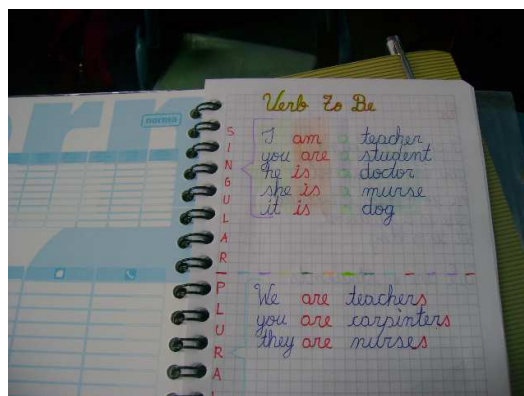 norma
Verb To Be
SINGULAR
I am a teacher
you are a student
he is a doctor
she is a nurse
it is a dog
PLURAL
We are teachers
you are carpinters
they are nurses